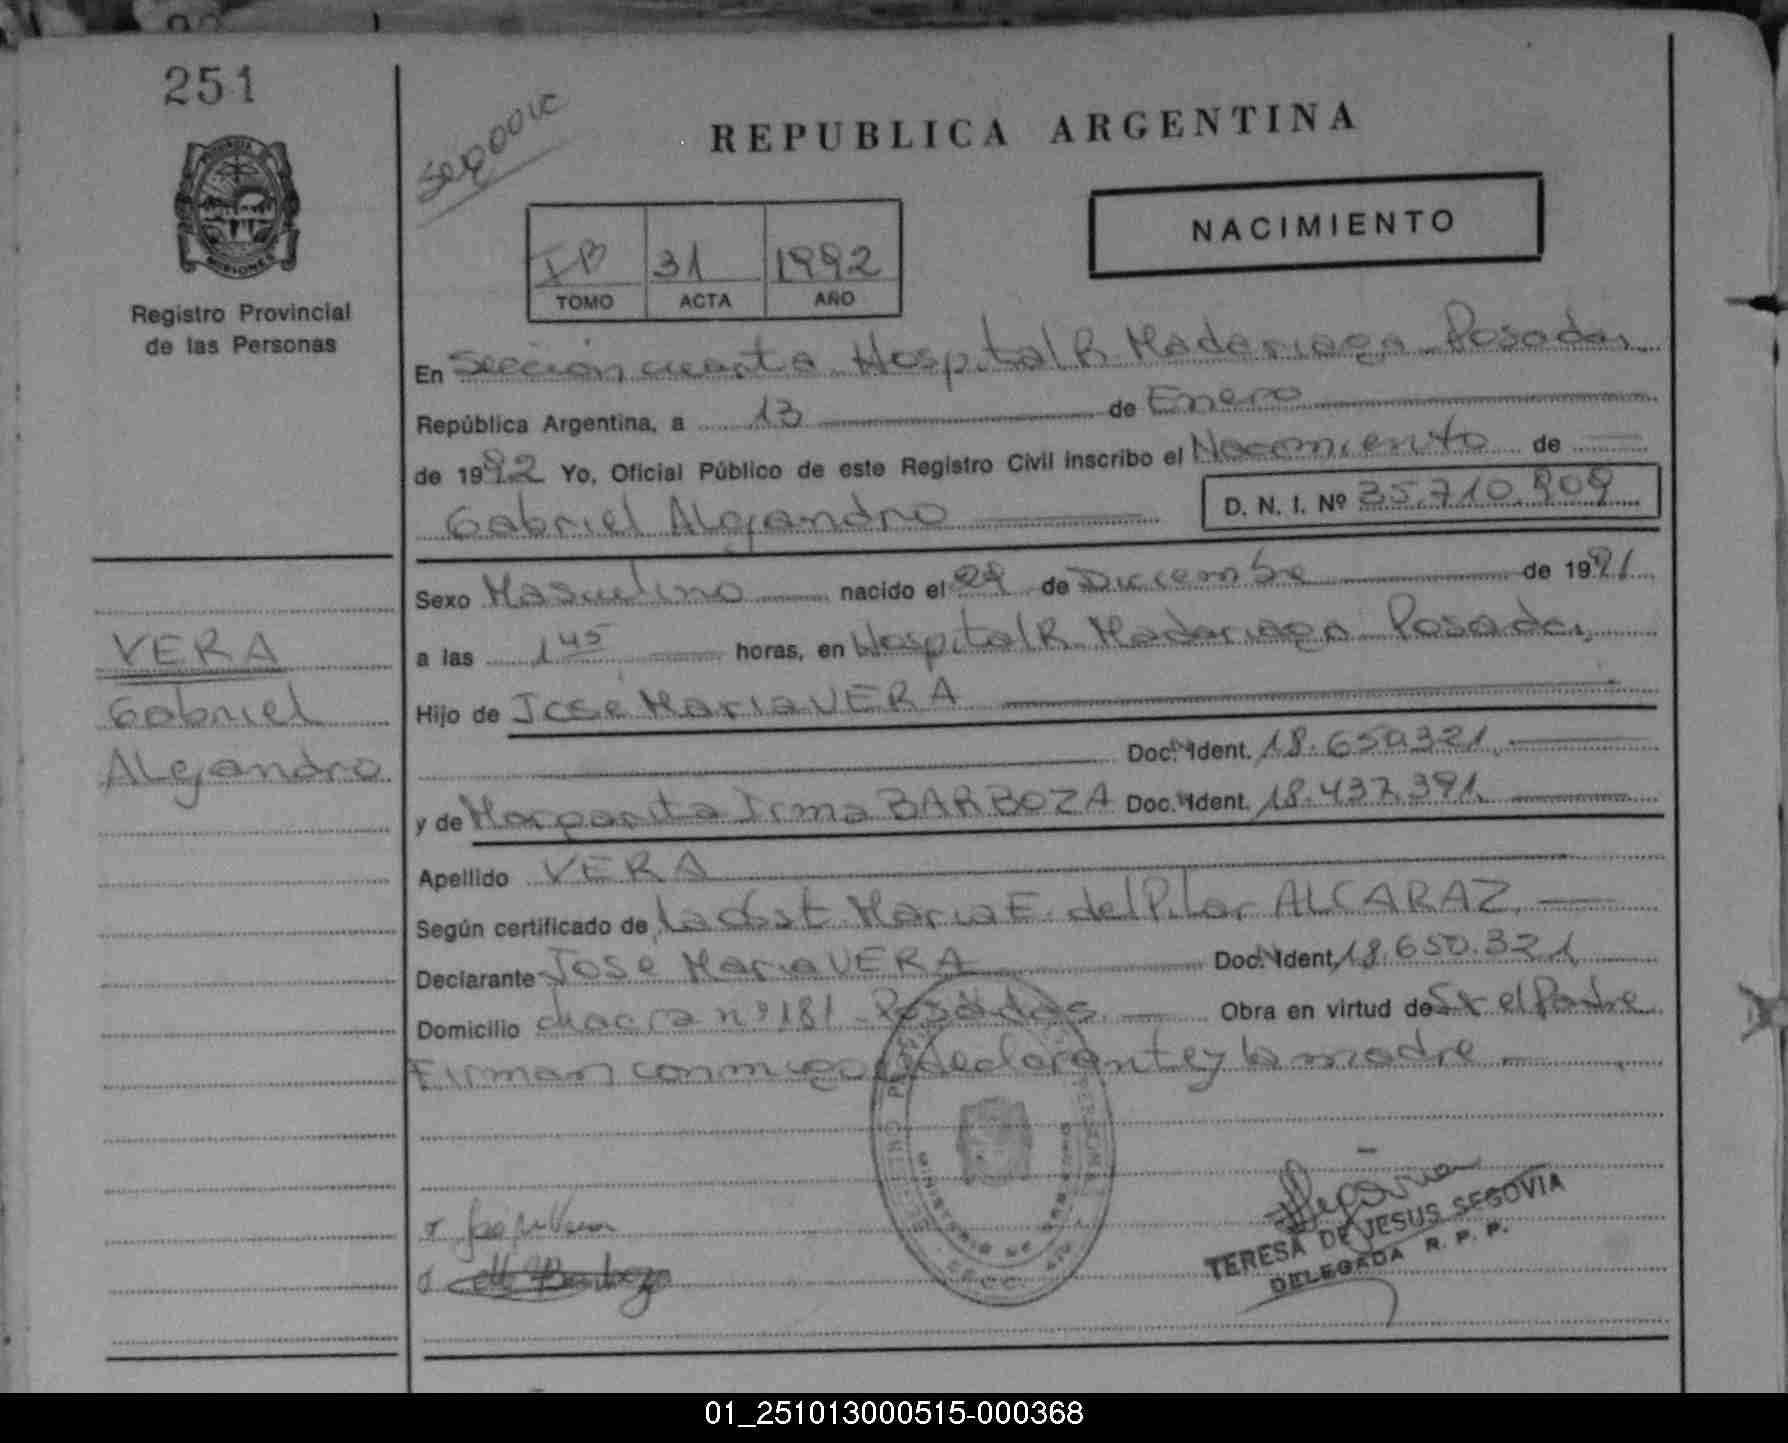 251
REPUBLICA ARGENTINA
NACIMIENTO
IB 31 1992
TOMO ACTA AÑO
PROVINCIA
MISIONES
Registro Provincial
de las Personas
En Sección cuarta Hospital R. Madariaga Posadas
República Argentina, a 13 de Enero
de 1992 Yo, Oficial Público de este Registro Civil inscribo el Nacimiento de
Gabriel Alejandro D. N. I. Nº 35.710.909
Sexo Masculino nacido el de Diciembre de 1991
VERA
Gabriel
Alejandro
a las 1 45 horas, en Hospital R. Madariaga Posadas
Hijo de José Maria VERA
Doc. Ident. 18.650.321
y de Margarita Irma BARBOZA Doc. Ident. 18.437.391
Apellido VERA
Según certificado de la Obst. Maria E. del Pilar ALCARAZ
Declarante Jose Maria VERA Doc. Ident. 18.650.321
Domicilio chacra nº 181 - Posadas Obra en virtud de Ser el Padre
Firman conmigo el declarante y la madre
TERESA DE JESUS SEGOVIA
DELEGADA R. P. P.
01_251013000515-000368